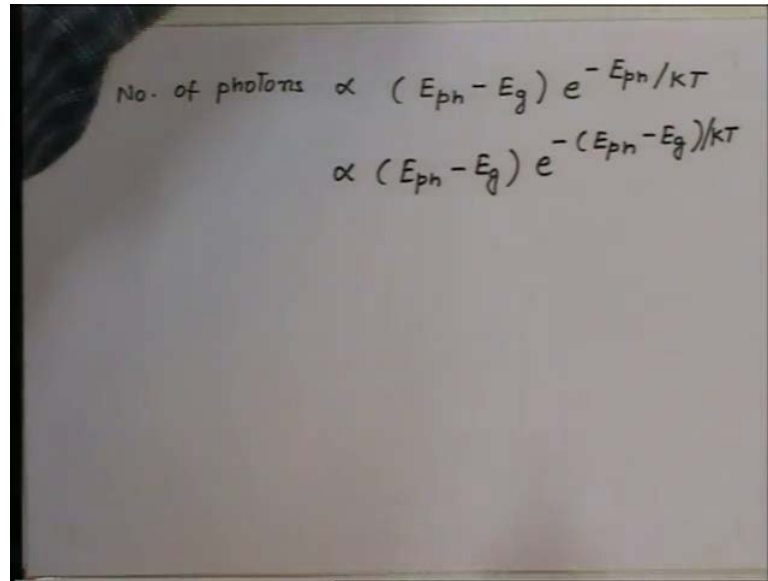 No. of photons ∝ (E_ph - E_g) e^{-E_ph/KT}
∝ (E_ph - E_g) e^{-(E_ph - E_g)/KT}